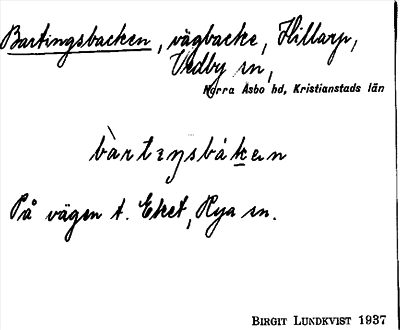 Bartingsbacken, vägbacke, Hillarp,
Vedby sn,
Norra Åsbo hd, Kristianstads län
bàrtıŋsbákɐn
På vägen t. Eket, Rya sn.
BIRGIT LUNDKVIST 1937